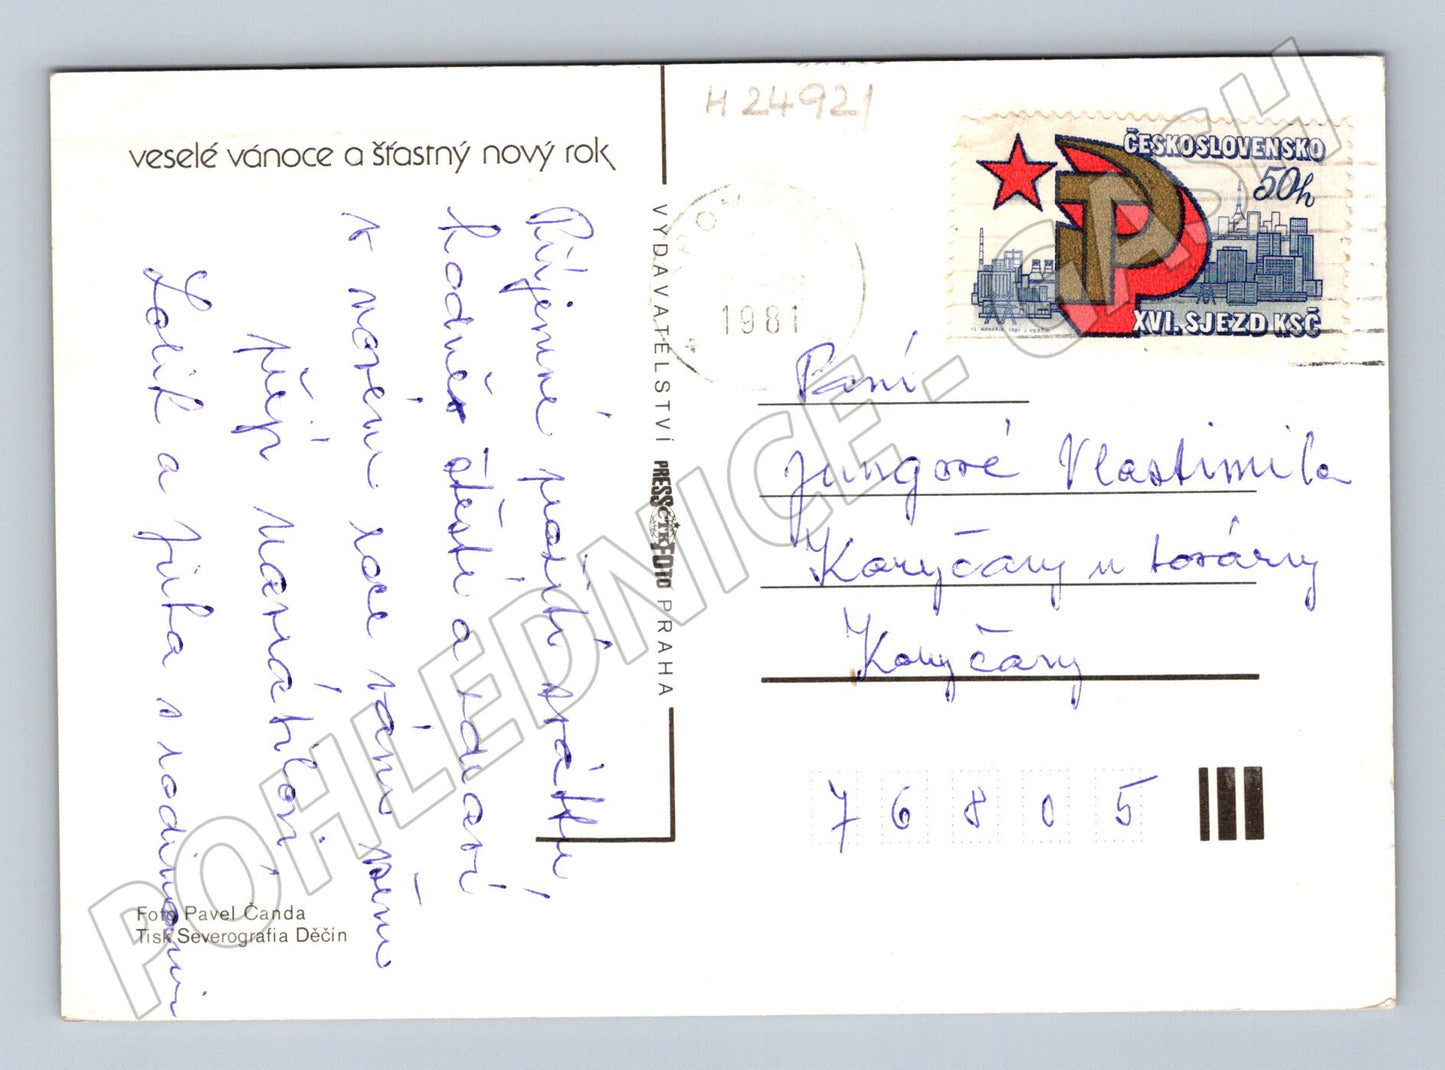 H 24921
veselé vánoce a šťastný nový rok
Příjemné prožití svátků
hodně štěstí a zdraví
v novém roce vám všem
přejí Navrátilovi
Lolik a Jirka s rodinami
Foto Pavel Čanda
Tisk Severografia Děčín
VYDAVATELSTVÍ PRESSFOTO PRAHA
ČTK
1981
ČESKOSLOVENSKO
50h
XVI. SJEZD KSČ
Paní
Jungové Vlastimila
Koryčany u továrny
Koryčany
76805
POHLEDNICE - CASH